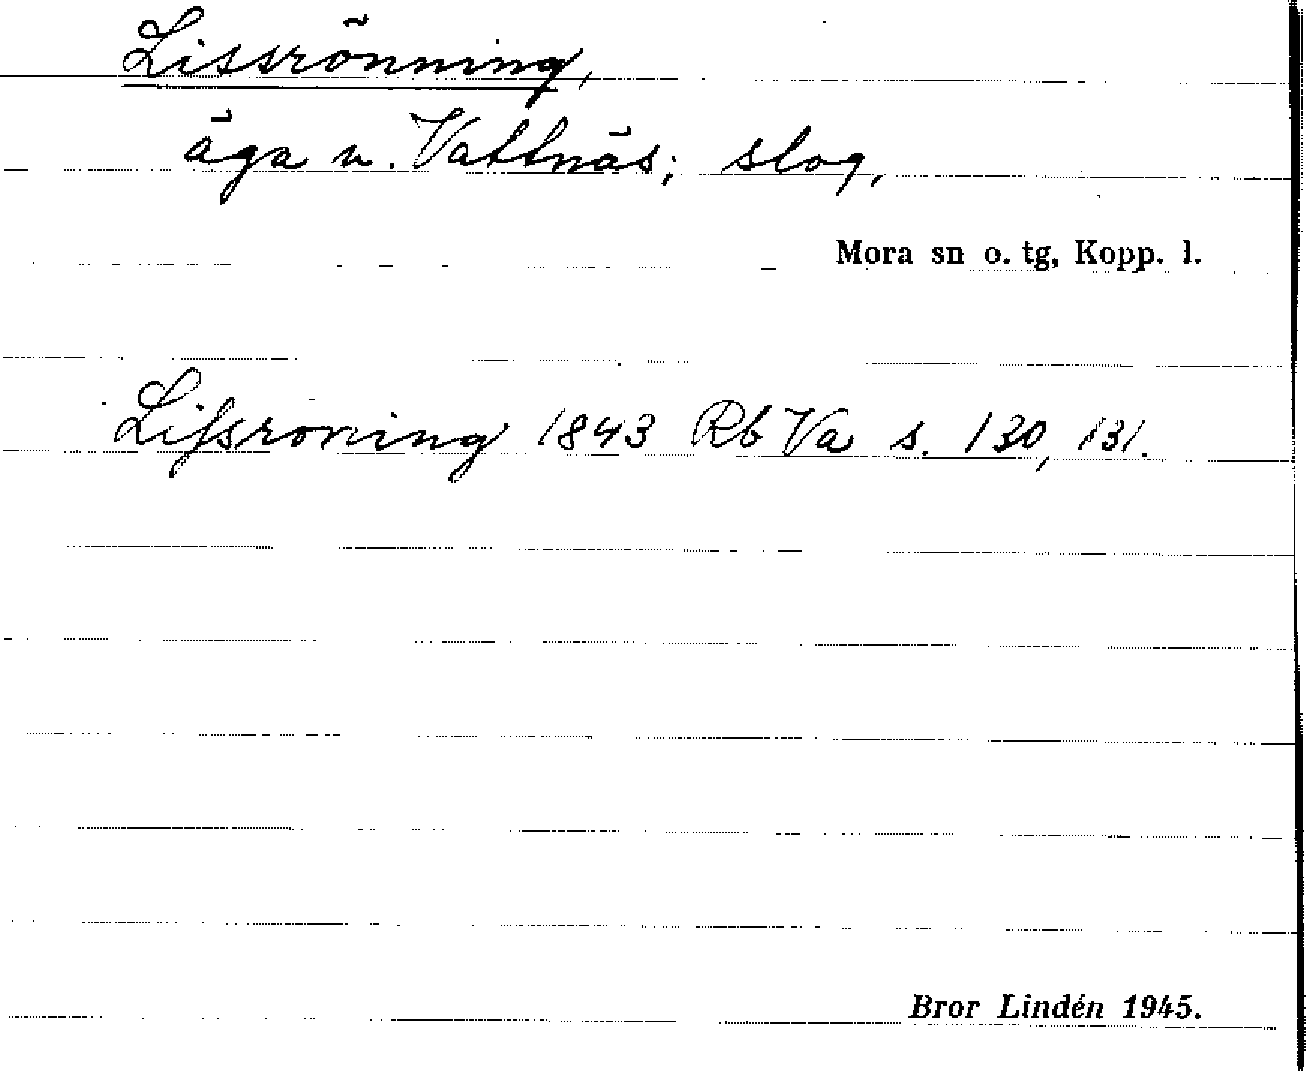 Lissrönning,
äga u. Vattnäs; slog,
Mora sn o. tg, Kopp. l.
Lifsroning 1843 Rb Va s. 130, 131.
Bror Lindén 1945.